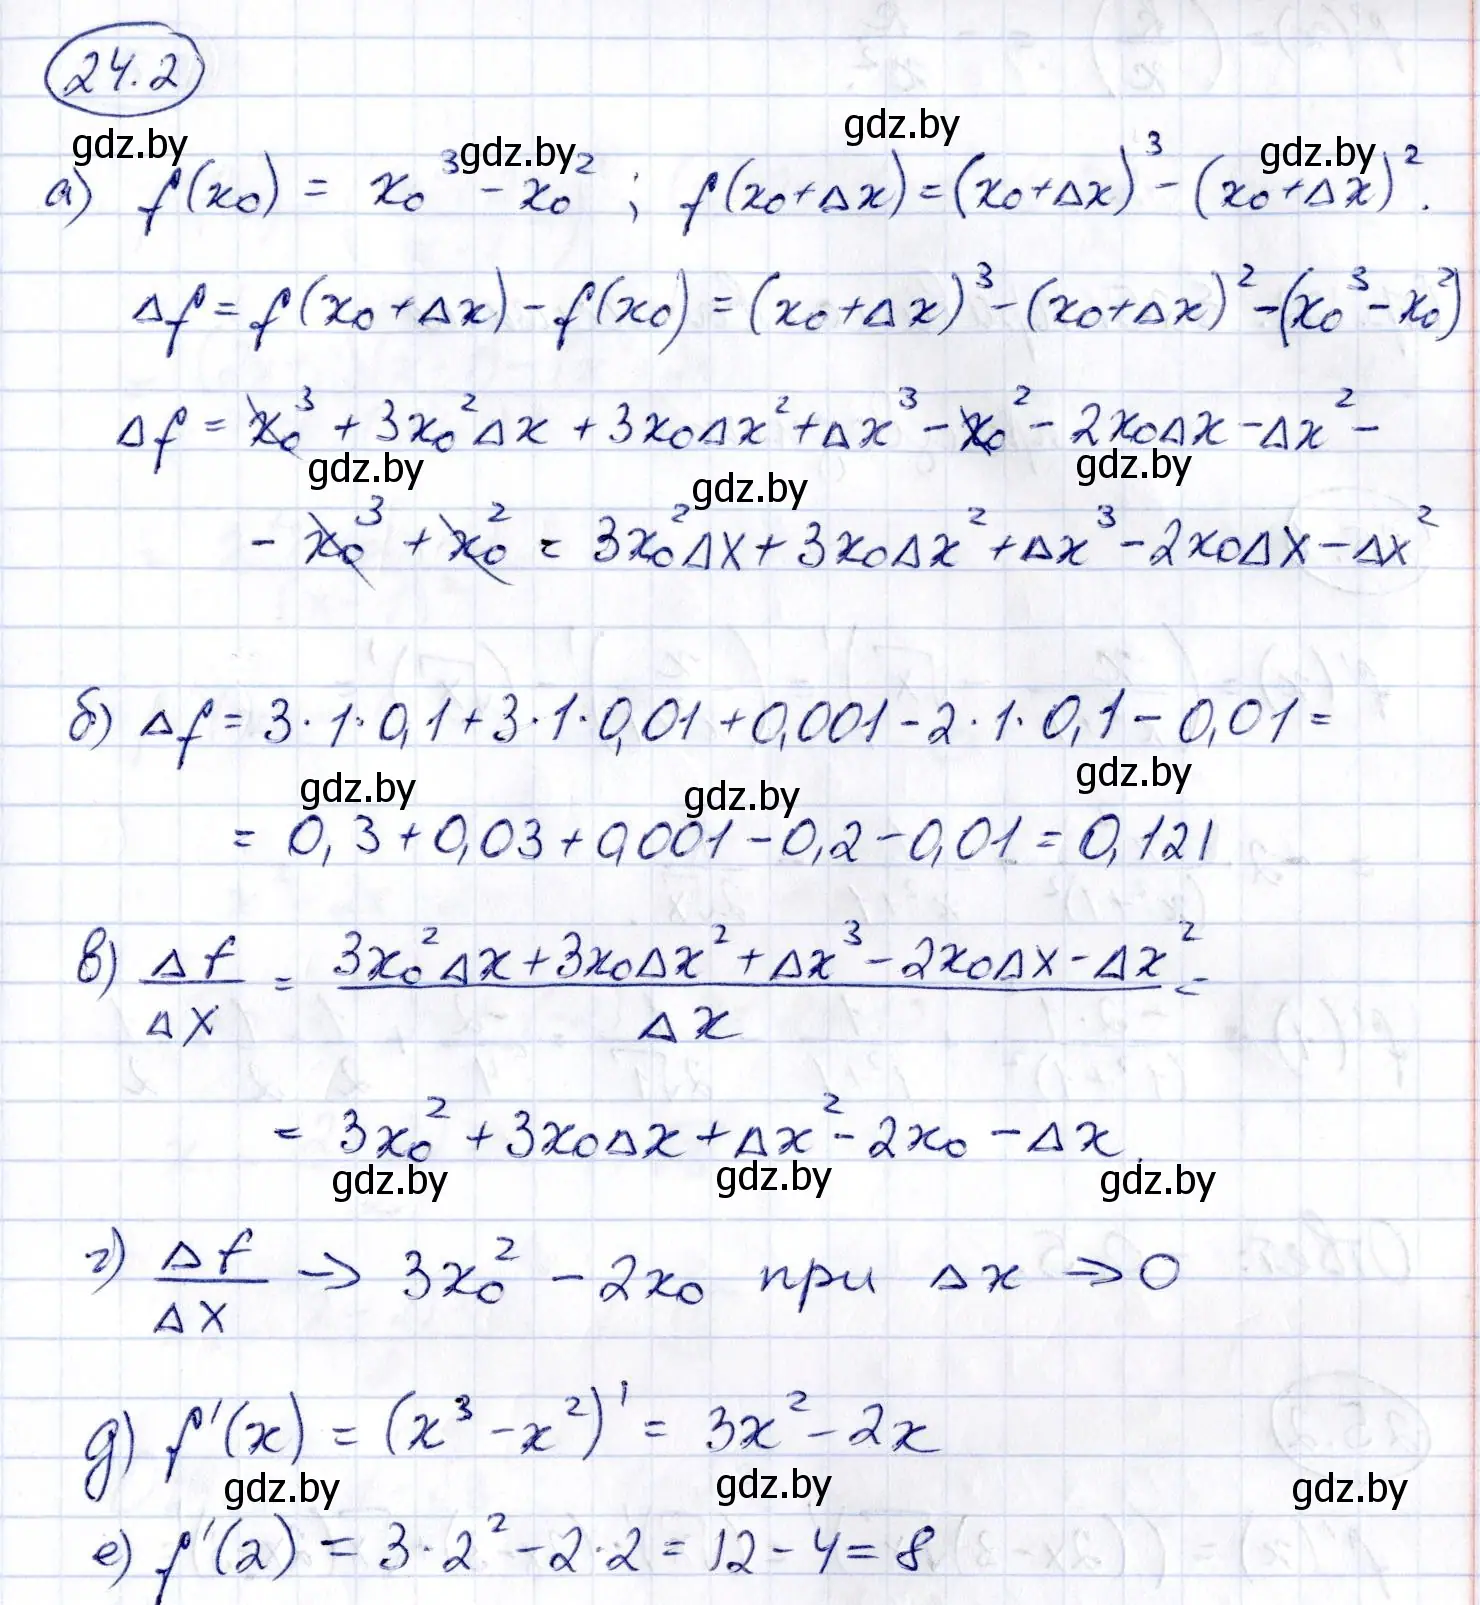 24.2
gdz.by gdz.by gdz.by gdz.by
а) f(x₀) = x₀³ - x₀² ; f(x₀+Δx) = (x₀+Δx)³ - (x₀+Δx)².
Δf = f(x₀+Δx) - f(x₀) = (x₀+Δx)³ - (x₀+Δx)² - (x₀³ - x₀²)
Δf = x₀³ + 3x₀²Δx + 3x₀Δx² + Δx³ - x₀² - 2x₀Δx - Δx² -
gdz.by gdz.by gdz.by
- x₀³ + x₀² = 3x₀²Δx + 3x₀Δx² + Δx³ - 2x₀Δx - Δx²
б) Δf = 3·1·0,1 + 3·1·0,01 + 0,001 - 2·1·0,1 - 0,01 =
gdz.by gdz.by gdz.by
= 0,3 + 0,03 + 0,001 - 0,2 - 0,01 = 0,121
в) Δf/Δx = (3x₀²Δx + 3x₀Δx² + Δx³ - 2x₀Δx - Δx²)/Δx =
= 3x₀² + 3x₀Δx + Δx² - 2x₀ - Δx
gdz.by gdz.by gdz.by
г) Δf/Δx → 3x₀² - 2x₀ при Δx → 0
д) f'(x) = (x³ - x²)' = 3x² - 2x
gdz.by gdz.by gdz.by
е) f'(2) = 3·2² - 2·2 = 12 - 4 = 8